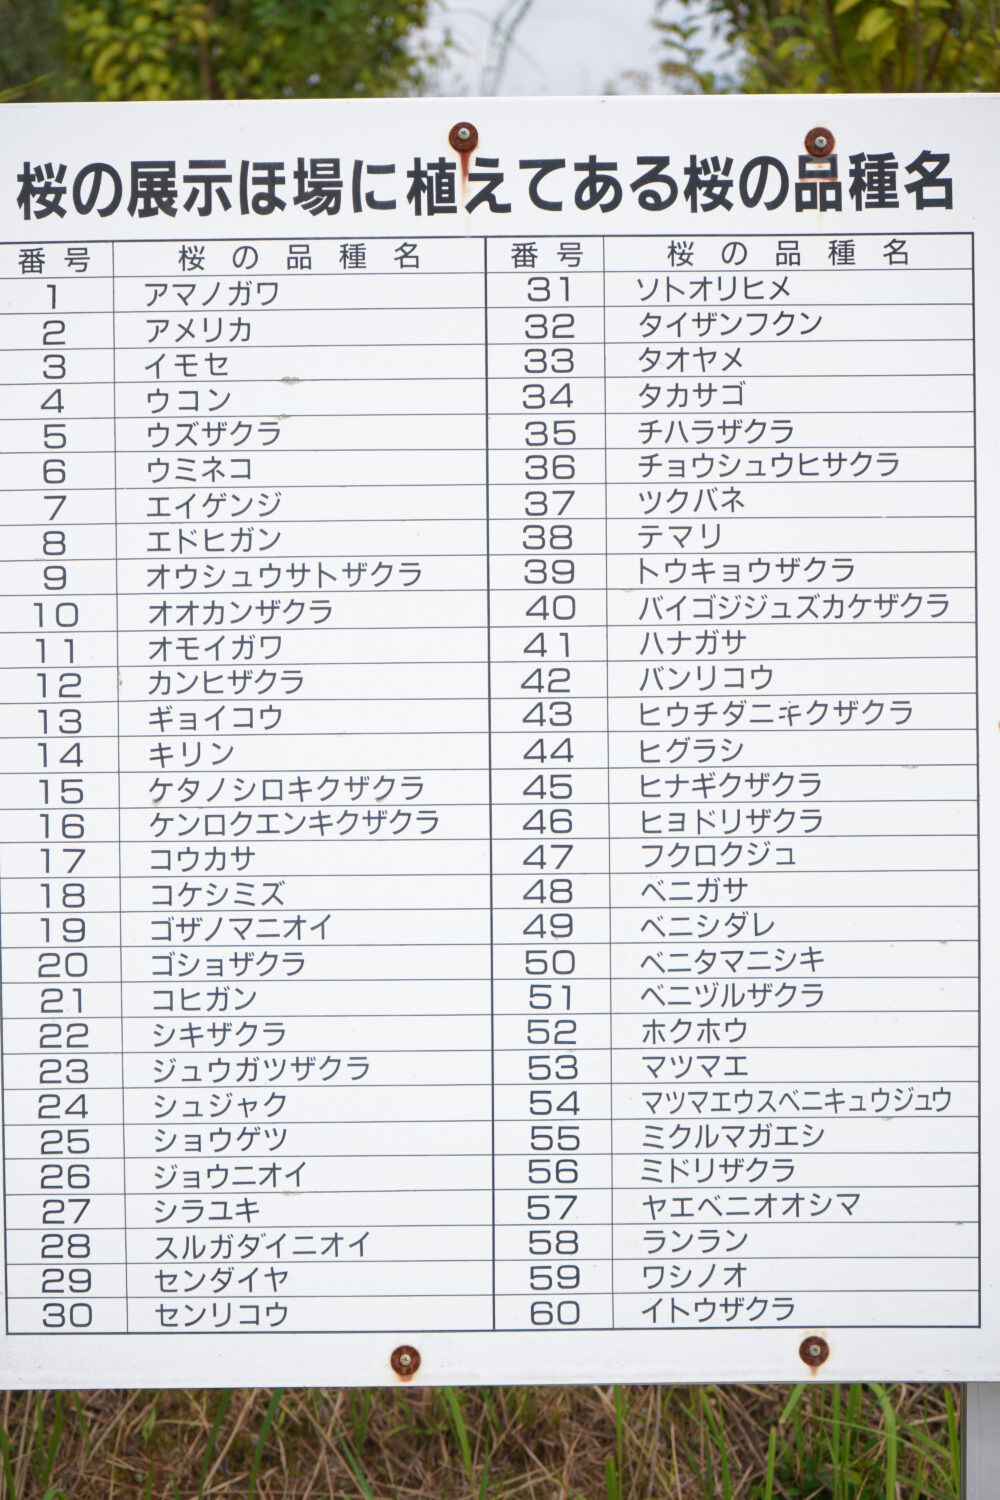 桜の展示ほ場に植えてある桜の品種名
番号 桜の品種名 番号 桜の品種名
1 アマノガワ 31 ソトオリヒメ
2 アメリカ 32 タイザンフクン
3 イモセ 33 タオヤメ
4 ウコン 34 タカサゴ
5 ウズザクラ 35 チハラザクラ
6 ウミネコ 36 チョウシュウヒサクラ
7 エイゲンジ 37 ツクバネ
8 エドヒガン 38 テマリ
9 オウシュウサトザクラ 39 トウキョウザクラ
10 オオカンザクラ 40 バイゴジジュズカケザクラ
11 オモイガワ 41 ハナガサ
12 カンヒザクラ 42 バンリコウ
13 ギョイコウ 43 ヒウチダニキクザクラ
14 キリン 44 ヒグラシ
15 ケタノシロキクザクラ 45 ヒナギクザクラ
16 ケンロクエンキクザクラ 46 ヒョドリザクラ
17 コウカサ 47 フクロクジュ
18 コケシミズ 48 ベニガサ
19 ゴザノマニオイ 49 ベニシダレ
20 ゴショザクラ 50 ベニタマニシキ
21 コヒガン 51 ベニヅルザクラ
22 シキザクラ 52 ホクホウ
23 ジュウガツザクラ 53 マツマエ
24 シュジャク 54 マツマエウスベニキュウジュウ
25 ショウゲツ 55 ミクルマガエシ
26 ジョウニオイ 56 ミドリザクラ
27 シラユキ 57 ヤエベニオオシマ
28 スルガダイニオイ 58 ランラン
29 センダイヤ 59 ワシノオ
30 センリコウ 60 イトウザクラ